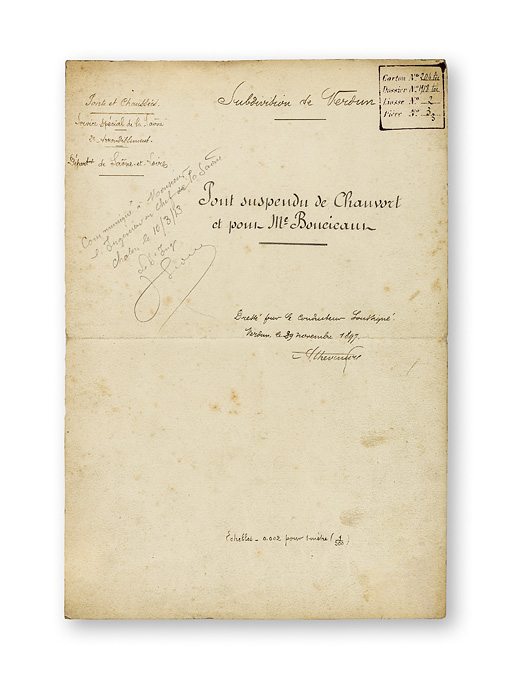 Ponts et Chaussées.
Service Spécial de la Saône
2e Arrondissement.
Départt de Saône-et-Loire
Subdivision de Verdun
Carton N°
Dossier N°
Liasse N° 2
Pièce N° 3
Communiqué à Monsieur
l'Ingénieur en Chef de la Saône
Chalon le 10/3/13
Pont suspendu de Chauvort
et pont Me Boucicaut
Dressé par le Conducteur soussigné.
Verdun, le 29 novembre 1897.
Echelles _ 0.002 pour 1 mètre (1/500)